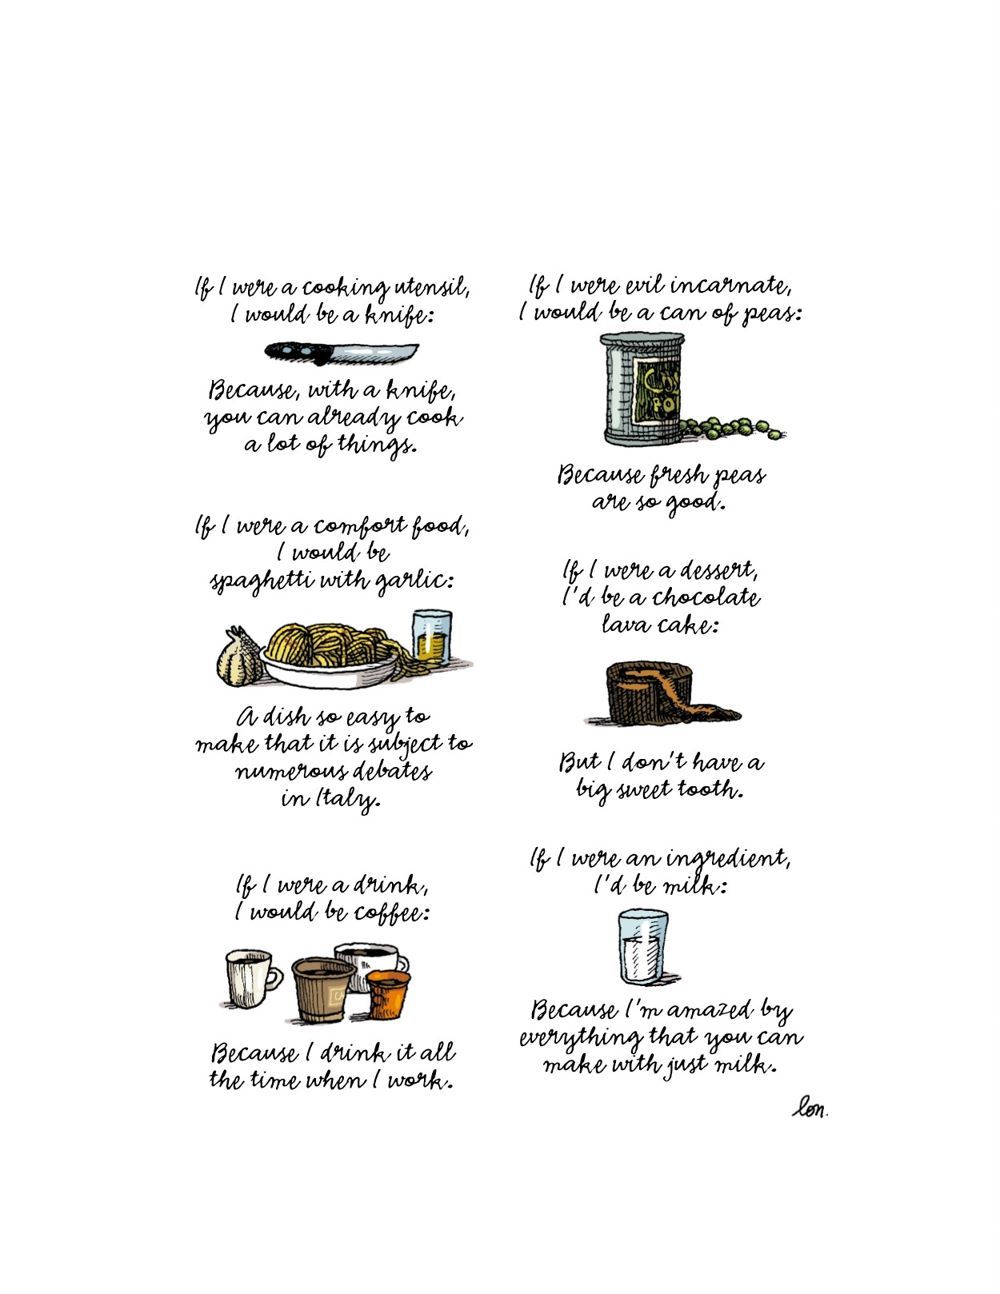 If I were a cooking utensil,
I would be a knife:
Because, with a knife,
you can already cook
a lot of things.
If I were a comfort food,
I would be
spaghetti with garlic:
A dish so easy to
make that it is subject to
numerous debates
in Italy.
If I were a drink,
I would be coffee:
Because I drink it all
the time when I work.
If I were evil incarnate,
I would be a can of peas:
Because fresh peas
are so good.
If I were a dessert,
I'd be a chocolate
lava cake:
But I don't have a
big sweet tooth.
If I were an ingredient,
I'd be milk:
Because I'm amazed by
everything that you can
make with just milk.
lon.